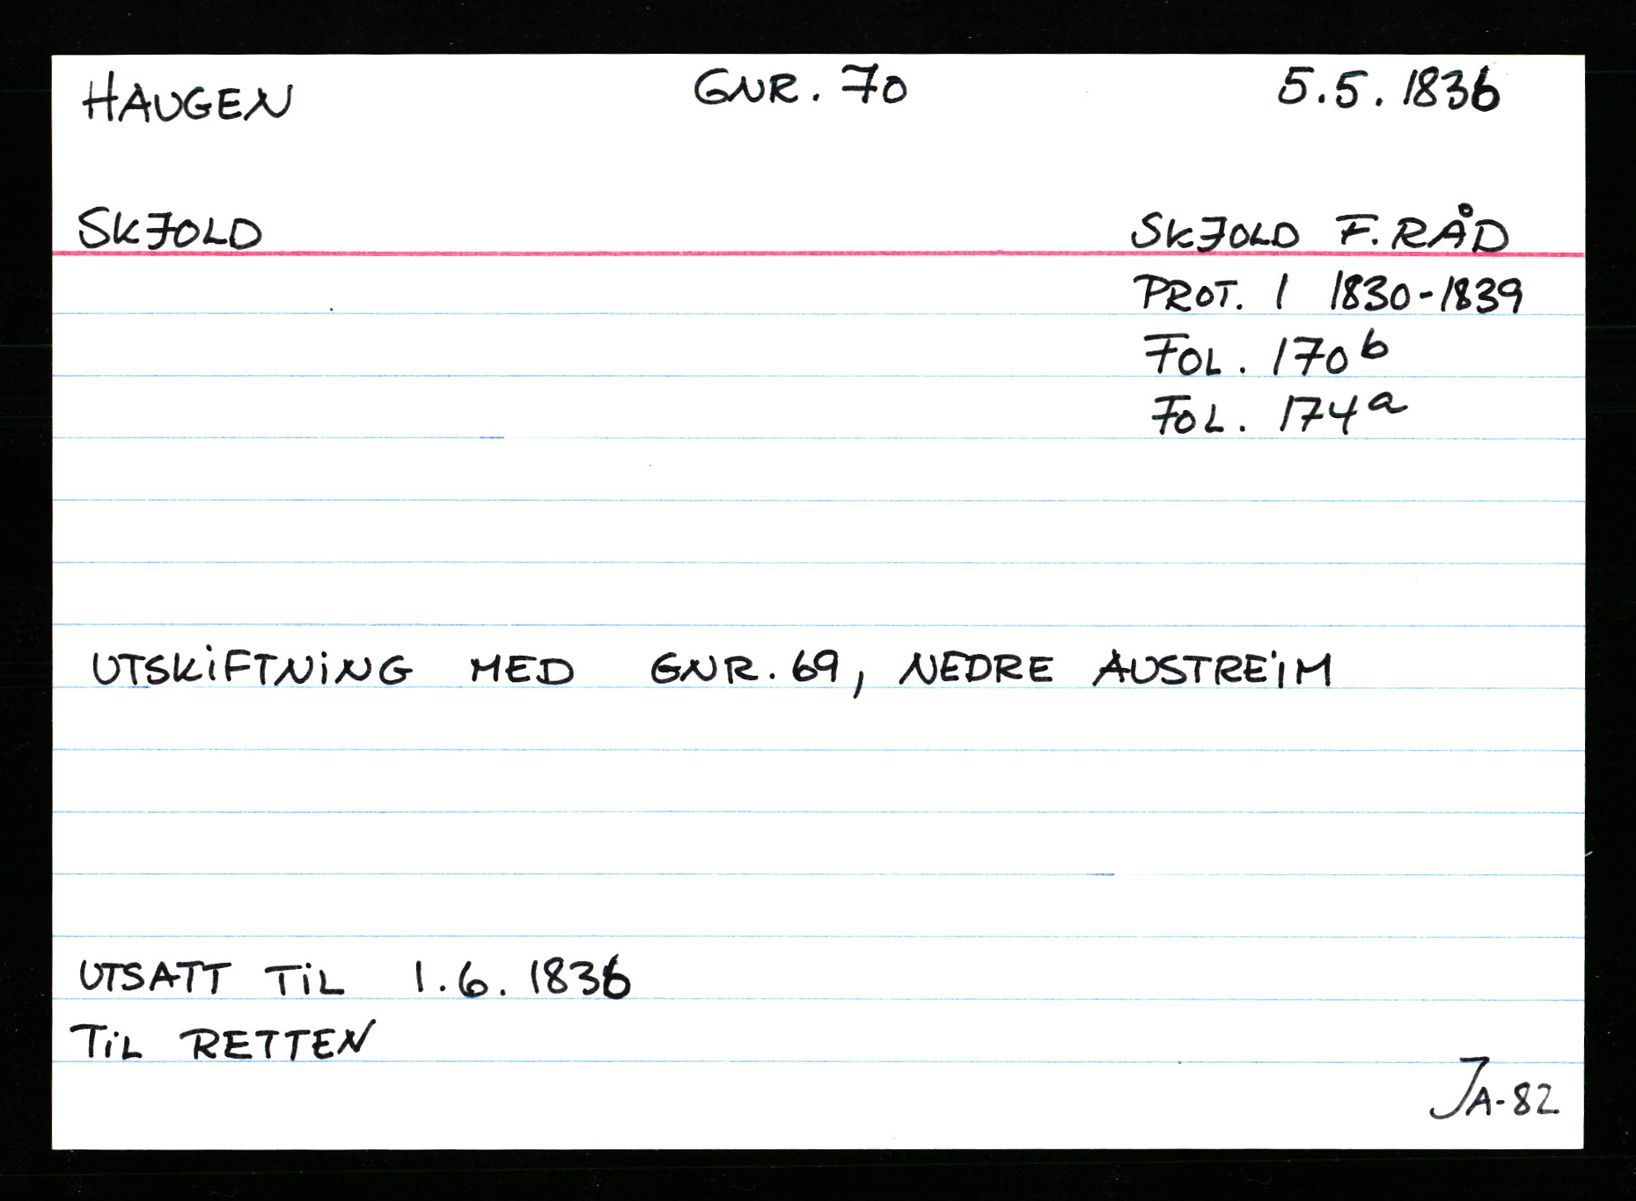 HAUGEN GNR. 70 5.5.1836
SKJOLD SKJOLD F.RÅD
PROT. 1 1830-1839
FOL. 170b
FOL. 174a
UTSKiFTNiNG MED GNR. 69, NEDRE AUSTREiM
UTSATT TiL 1.6.1836
TiL RETTEN
JA-82